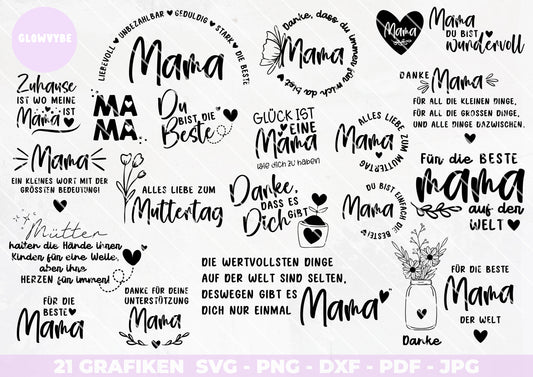 GLOWVYBE
LIEBEVOLL ♥ UNBEZAHLBAR ♥ GEDULDIG ♥ STARK ♥ DIE BESTE
Mama
Danke, dass du immer für mich da bist
Mama
Mama
Mama
DU BIST
wundervoll
Zuhause
IST WO MEINE
Mama IST
MA
MA
Du
BIST DIE
Beste
GLÜCK IST
EINE
Mama
wie dich zu haben
ALLES LIEBE ZUM MUTTERTAG
Mama
DANKE Mama
FÜR ALL DIE KLEINEN DINGE,
FÜR ALL DIE GROSSEN DINGE,
UND ALLE DINGE DAZWISCHEN.
Mama
EIN KLEINES WORT MIT DER
GRÖSSTEN BEDEUTUNG!
ALLES LIEBE ZUM
Muttertag
Danke,
DASS ES
Dich GIBT
DU BIST EINFACH DIE BESTE!
Mama
Für die BESTE
mama
auf der
WELT
Mütter
halten die Hände ihrer
Kinder für eine Weile,
aber ihre
HERZEN für immer!
FÜR DIE
BESTE
Mama
DANKE FÜR DEINE
UNTERSTÜTZUNG
Mama
DIE WERTVOLLSTEN DINGE
AUF DER WELT SIND SELTEN,
DESWEGEN GIBT ES
DICH NUR EINMAL Mama
Danke
FÜR DIE BESTE
Mama
DER WELT
21 GRAFIKEN SVG - PNG - DXF - PDF - JPG